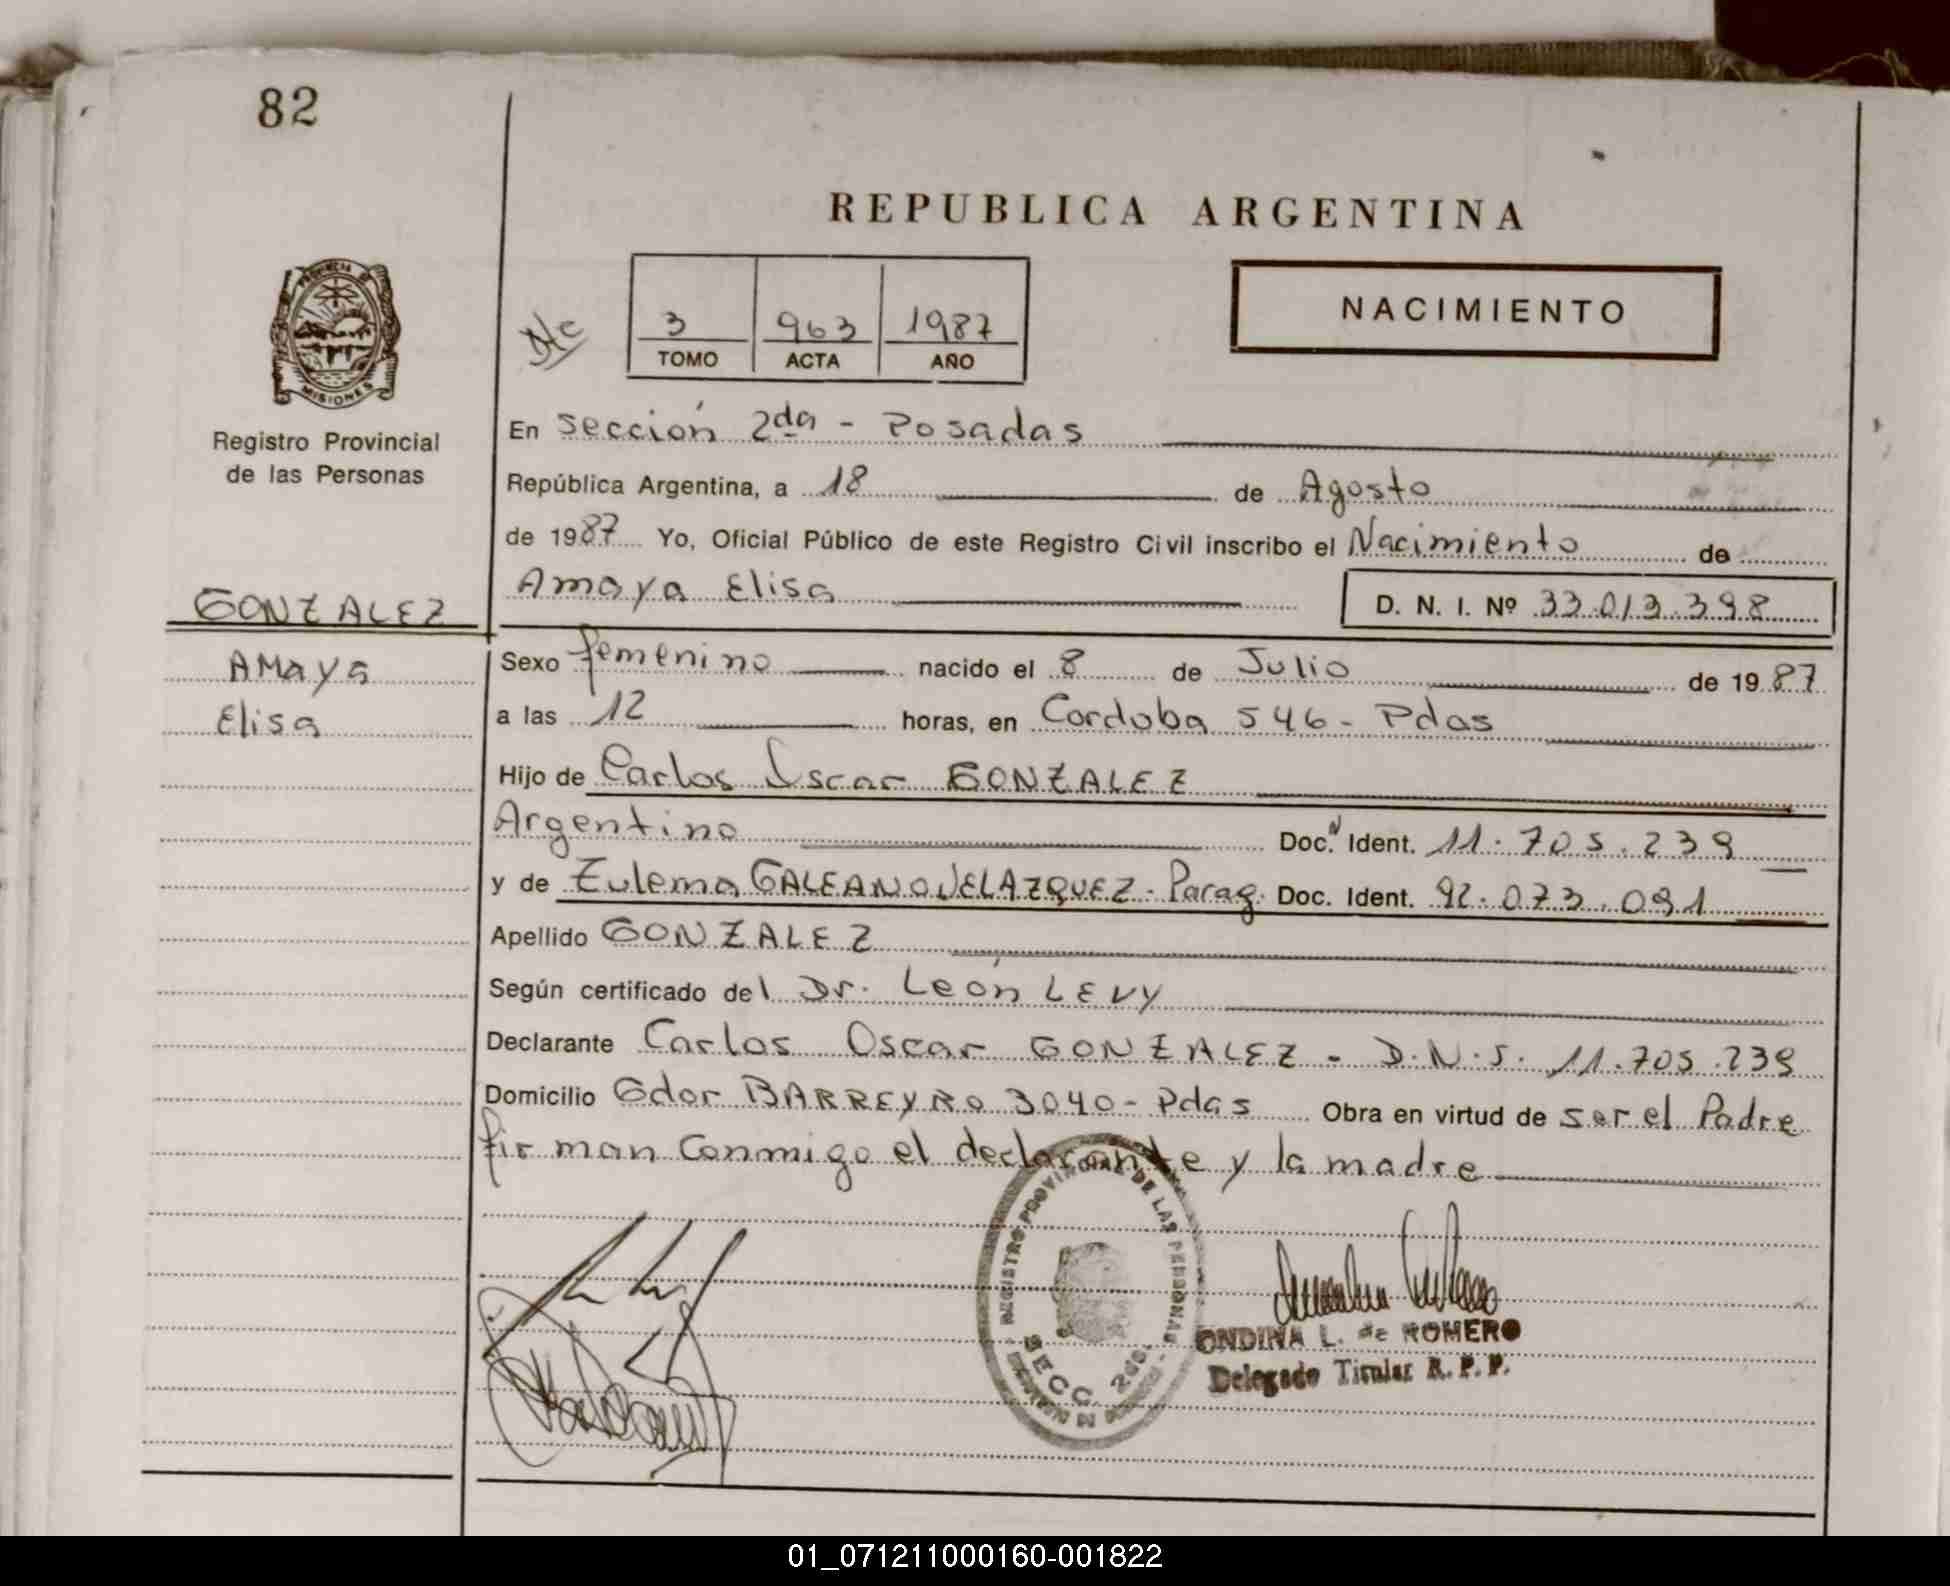 82
REPUBLICA ARGENTINA
PROVINCIA DE
MISIONES
3 963 1987
TOMO ACTA AÑO
NACIMIENTO
Registro Provincial
de las Personas
En sección 2da - Posadas
República Argentina, a 18 de Agosto
de 1987 Yo, Oficial Público de este Registro Civil inscribo el Nacimiento de
GONZALEZ
Amaya Elisa D. N. I. Nº 33.013.398
Amaya
Elisa
Sexo femenino nacido el 8 de Julio de 1987
a las 12 horas, en Cordoba 546 - Pdas
Hijo de Carlos Oscar GONZALEZ
Argentino Doc. Ident. 11.705.239
y de Zulema GALEANO VELAZQUEZ - Parag. Doc. Ident. 92.073.091
Apellido GONZALEZ
Según certificado del Dr. León LEVY
Declarante Carlos Oscar GONZALEZ - D.N.I. 11.705.239
Domicilio Gdor BARREYRO 3040 - Pdas Obra en virtud de ser el Padre
firman conmigo el declarante y la madre
REGISTRO PROVINCIAL DE LAS PERSONAS
SECC. 2da.
ONDINA L. de ROMERO
Delegado Titular R. P. P.
01_071211000160-001822